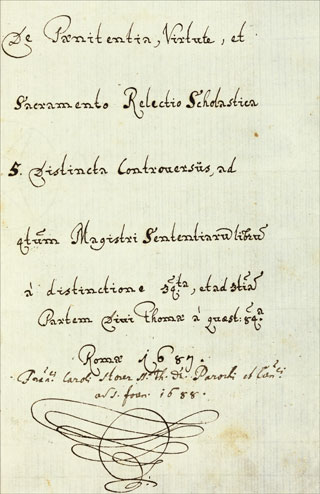 De Pœnitentia, Virtute, et
Sacramento Relectio Scholastica
5. Distincta Controversiis, ad
qtum Magistri Sententiarū librū
à distinctione, et ad 3tiā
Partem Divi Thomæ à quæst: 84ª
Romæ 1687.
Caroli S. Th. Dr. Parochi et Can:ci
ad S. Joan. 1688.